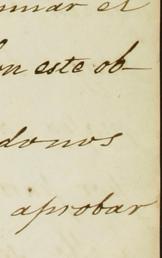 mar el
on este ob-
donos
aprobar